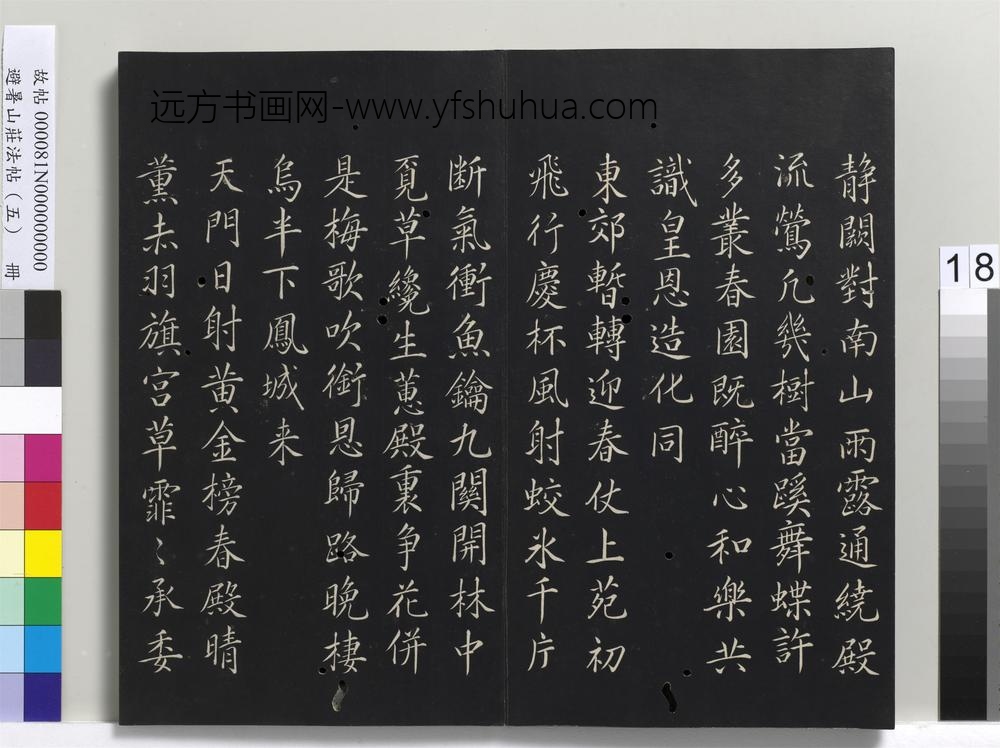 远方书画网-www.yfshuhua.com
静闕對南山雨露通繞殿
流鶯凢幾樹當蹊舞蝶許
多叢春園既醉心和樂共
識皇恩造化同
東郊暫轉迎春仗上苑初
飛行慶杯風射蛟氷千片
断氣衝魚鑰九関開林中
覓草纔生蕙殿裏争花併
是梅歌吹銜恩歸路晚棲
烏半下鳳城来
天門日射黄金榜春殿晴
薰赤羽旗宫草霏〻承委
故帖000081N000000000
避暑山莊法帖（五） 冊
18